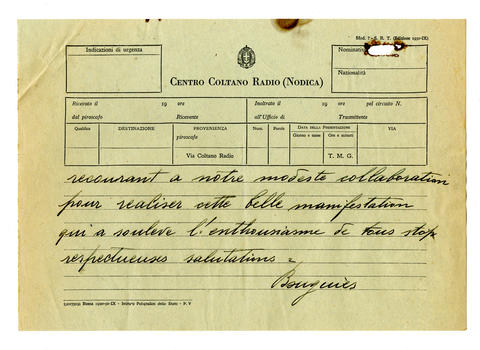 Mod. 7 - S. R. T. (Edizione 1930-IX)
Indicazioni di urgenza
Nominativo
Nazionalità
CENTRO COLTANO RADIO (NODICA)
Ricevuto il 19 ore
dal piroscafo Ricevente
Inoltrato il 19 ore pel circuito N.
all'Ufficio di Trasmittente
Qualifica DESTINAZIONE PROVENIENZA piroscafo Via Coltano Radio Num. Parole DATA DELLA PRESENTAZIONE Giorno e mese Ore e minuti T. M. G. VIA
recourant a notre modeste collaboration
pour realiser cette belle manifestation
qui a souleve l'enthousiasme de tous stop
respectueuses salutations =
Roma 1930-IX - Istituto Poligrafico dello Stato - P. V